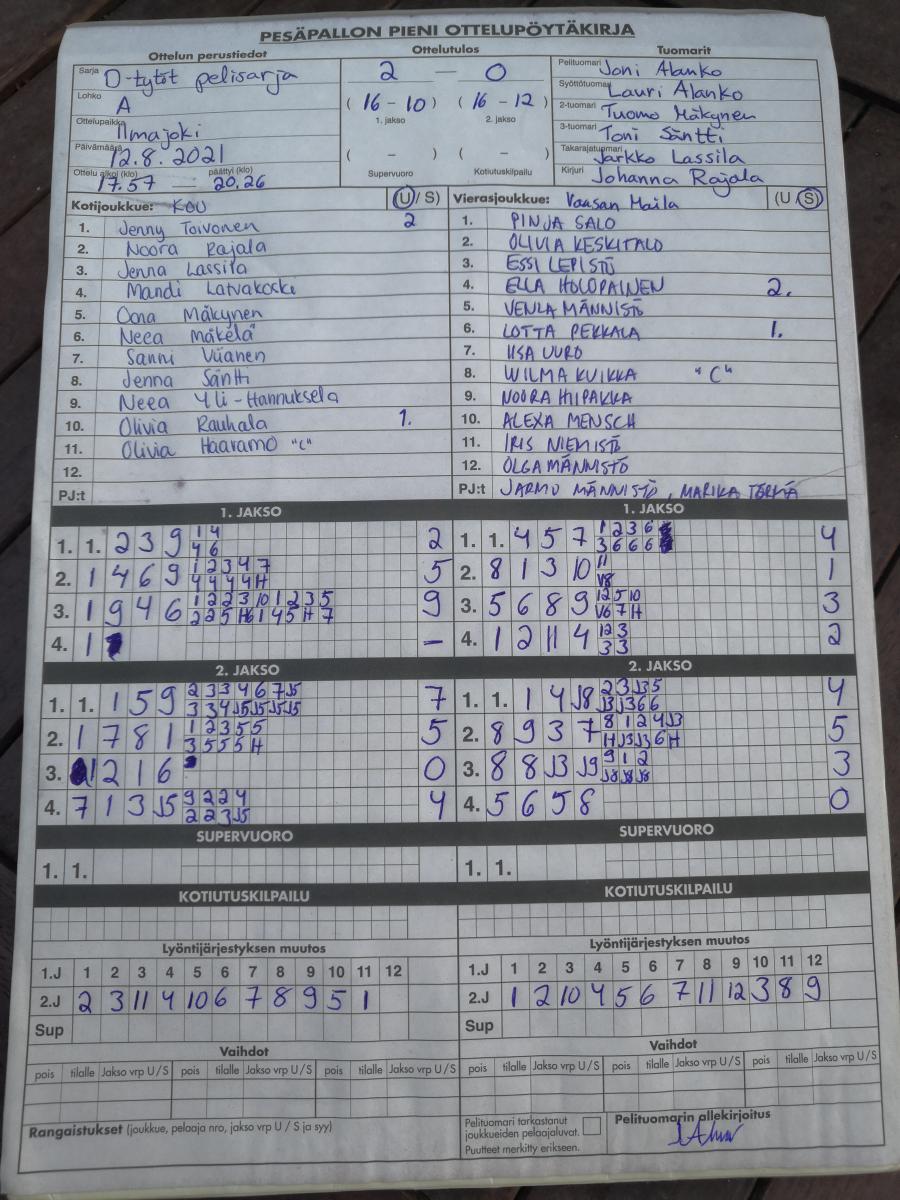 PESÄPALLON PIENI OTTELUPÖYTÄKIRJA
Ottelun perustiedot
Ottelutulos
Tuomarit
Sarja D-tytöt pelisarja
Lohko A
Ottelupaikka Ilmajoki
Päivämäärä 12.8.2021
Ottelu alkoi (klo) päättyi (klo)
17.57 — 20.26
2 — 0
(16 - 10) (16 - 12)
1. jakso 2. jakso
( - ) ( - )
Supervuoro Kotiutuskilpailu
Pelituomari Joni Alanko
Syöttötuomari Lauri Alanko
2-tuomari Tuomo Mäkynen
3-tuomari Toni Säntti
Takarajatuomari Jarkko Lassila
Kirjuri Johanna Rajala
Kotijoukkue: KOU (U / S)
1. Jenny Toivonen 2
2. Noora Rajala
3. Jenna Lassila
4. Mandi Latvakoski
5. Oona Mäkynen
6. Neea Mäkelä
7. Sanni Viianen
8. Jenna Säntti
9. Neea Yli-Hannuksela
10. Olivia Rauhala 1.
11. Olivia Haaramo "C"
12.
PJ:t
Vierasjoukkue: Vaasan Maila (U / S)
1. PINJA SALO
2. OLIVIA KESKITALO
3. ESSI LEPISTÖ
4. ELLA HOLOPAINEN 2.
5. VENLA MÄNNISTÖ
6. LOTTA PEKKALA 1.
7. IISA UURO
8. WILMA KUIKKA "C"
9. NOORA HIIPAKKA
10. ALEXA MENSCH
11. IRIS NIEMISTÖ
12. OLGA MÄNNISTÖ
PJ:t JARMO MÄNNISTÖ, MARIKA TÖRMÄ
1. JAKSO
1. 1. 2 3 9 1 4 2
4 6
2. 1 4 6 9 1 2 3 4 7 5
4 4 4 4 H
3. 1 9 4 6 1 2 2 3 10 1 2 3 5 9
2 2 5 H6 1 4 5 H 7
4. 1 –
1. JAKSO
1. 1. 4 5 7 1 2 3 6 4
3 6 6 6
2. 8 1 3 10 11 1
V8
3. 5 6 8 9 12 5 10 3
V6 7 H
4. 1 2 11 4 12 3 2
3 3
2. JAKSO
1. 1. 1 5 9 2 3 3 4 6 7 J5 7
3 3 4 J5 J5 J5 J5
2. 1 7 8 1 1 2 3 5 5 5
3 5 5 5 H
3. 1 2 1 6 0
4. 7 1 3 J5 9 2 2 4 4
2 2 3 J5
2. JAKSO
1. 1. 1 4 J8 2 3 J3 5 4
J3 J3 6 6
2. 8 9 3 7 8 1 2 4 J3 5
H J3 J3 6 H
3. 8 8 J3 J9 9 1 2 3
J8 J8 J8
4. 5 6 5 8 0
SUPERVUORO
1. 1.
SUPERVUORO
1. 1.
KOTIUTUSKILPAILU
KOTIUTUSKILPAILU
Lyöntijärjestyksen muutos
1.J 1 2 3 4 5 6 7 8 9 10 11 12
2.J 2 3 11 4 10 6 7 8 9 5 1
Sup
Lyöntijärjestyksen muutos
1.J 1 2 3 4 5 6 7 8 9 10 11 12
2.J 1 2 10 4 5 6 7 11 12 3 8 9
Sup
Vaihdot
pois tilalle Jakso vrp U / S pois tilalle Jakso vrp U / S pois tilalle Jakso vrp U / S
Vaihdot
pois tilalle Jakso vrp U / S pois tilalle Jakso vrp U / S pois tilalle Jakso vrp U / S
Rangaistukset (joukkue, pelaaja nro, jakso vrp U / S ja syy)
Pelituomari tarkastanut
joukkueiden pelaajaluvat.
Puutteet merkitty erikseen.
Pelituomarin allekirjoitus